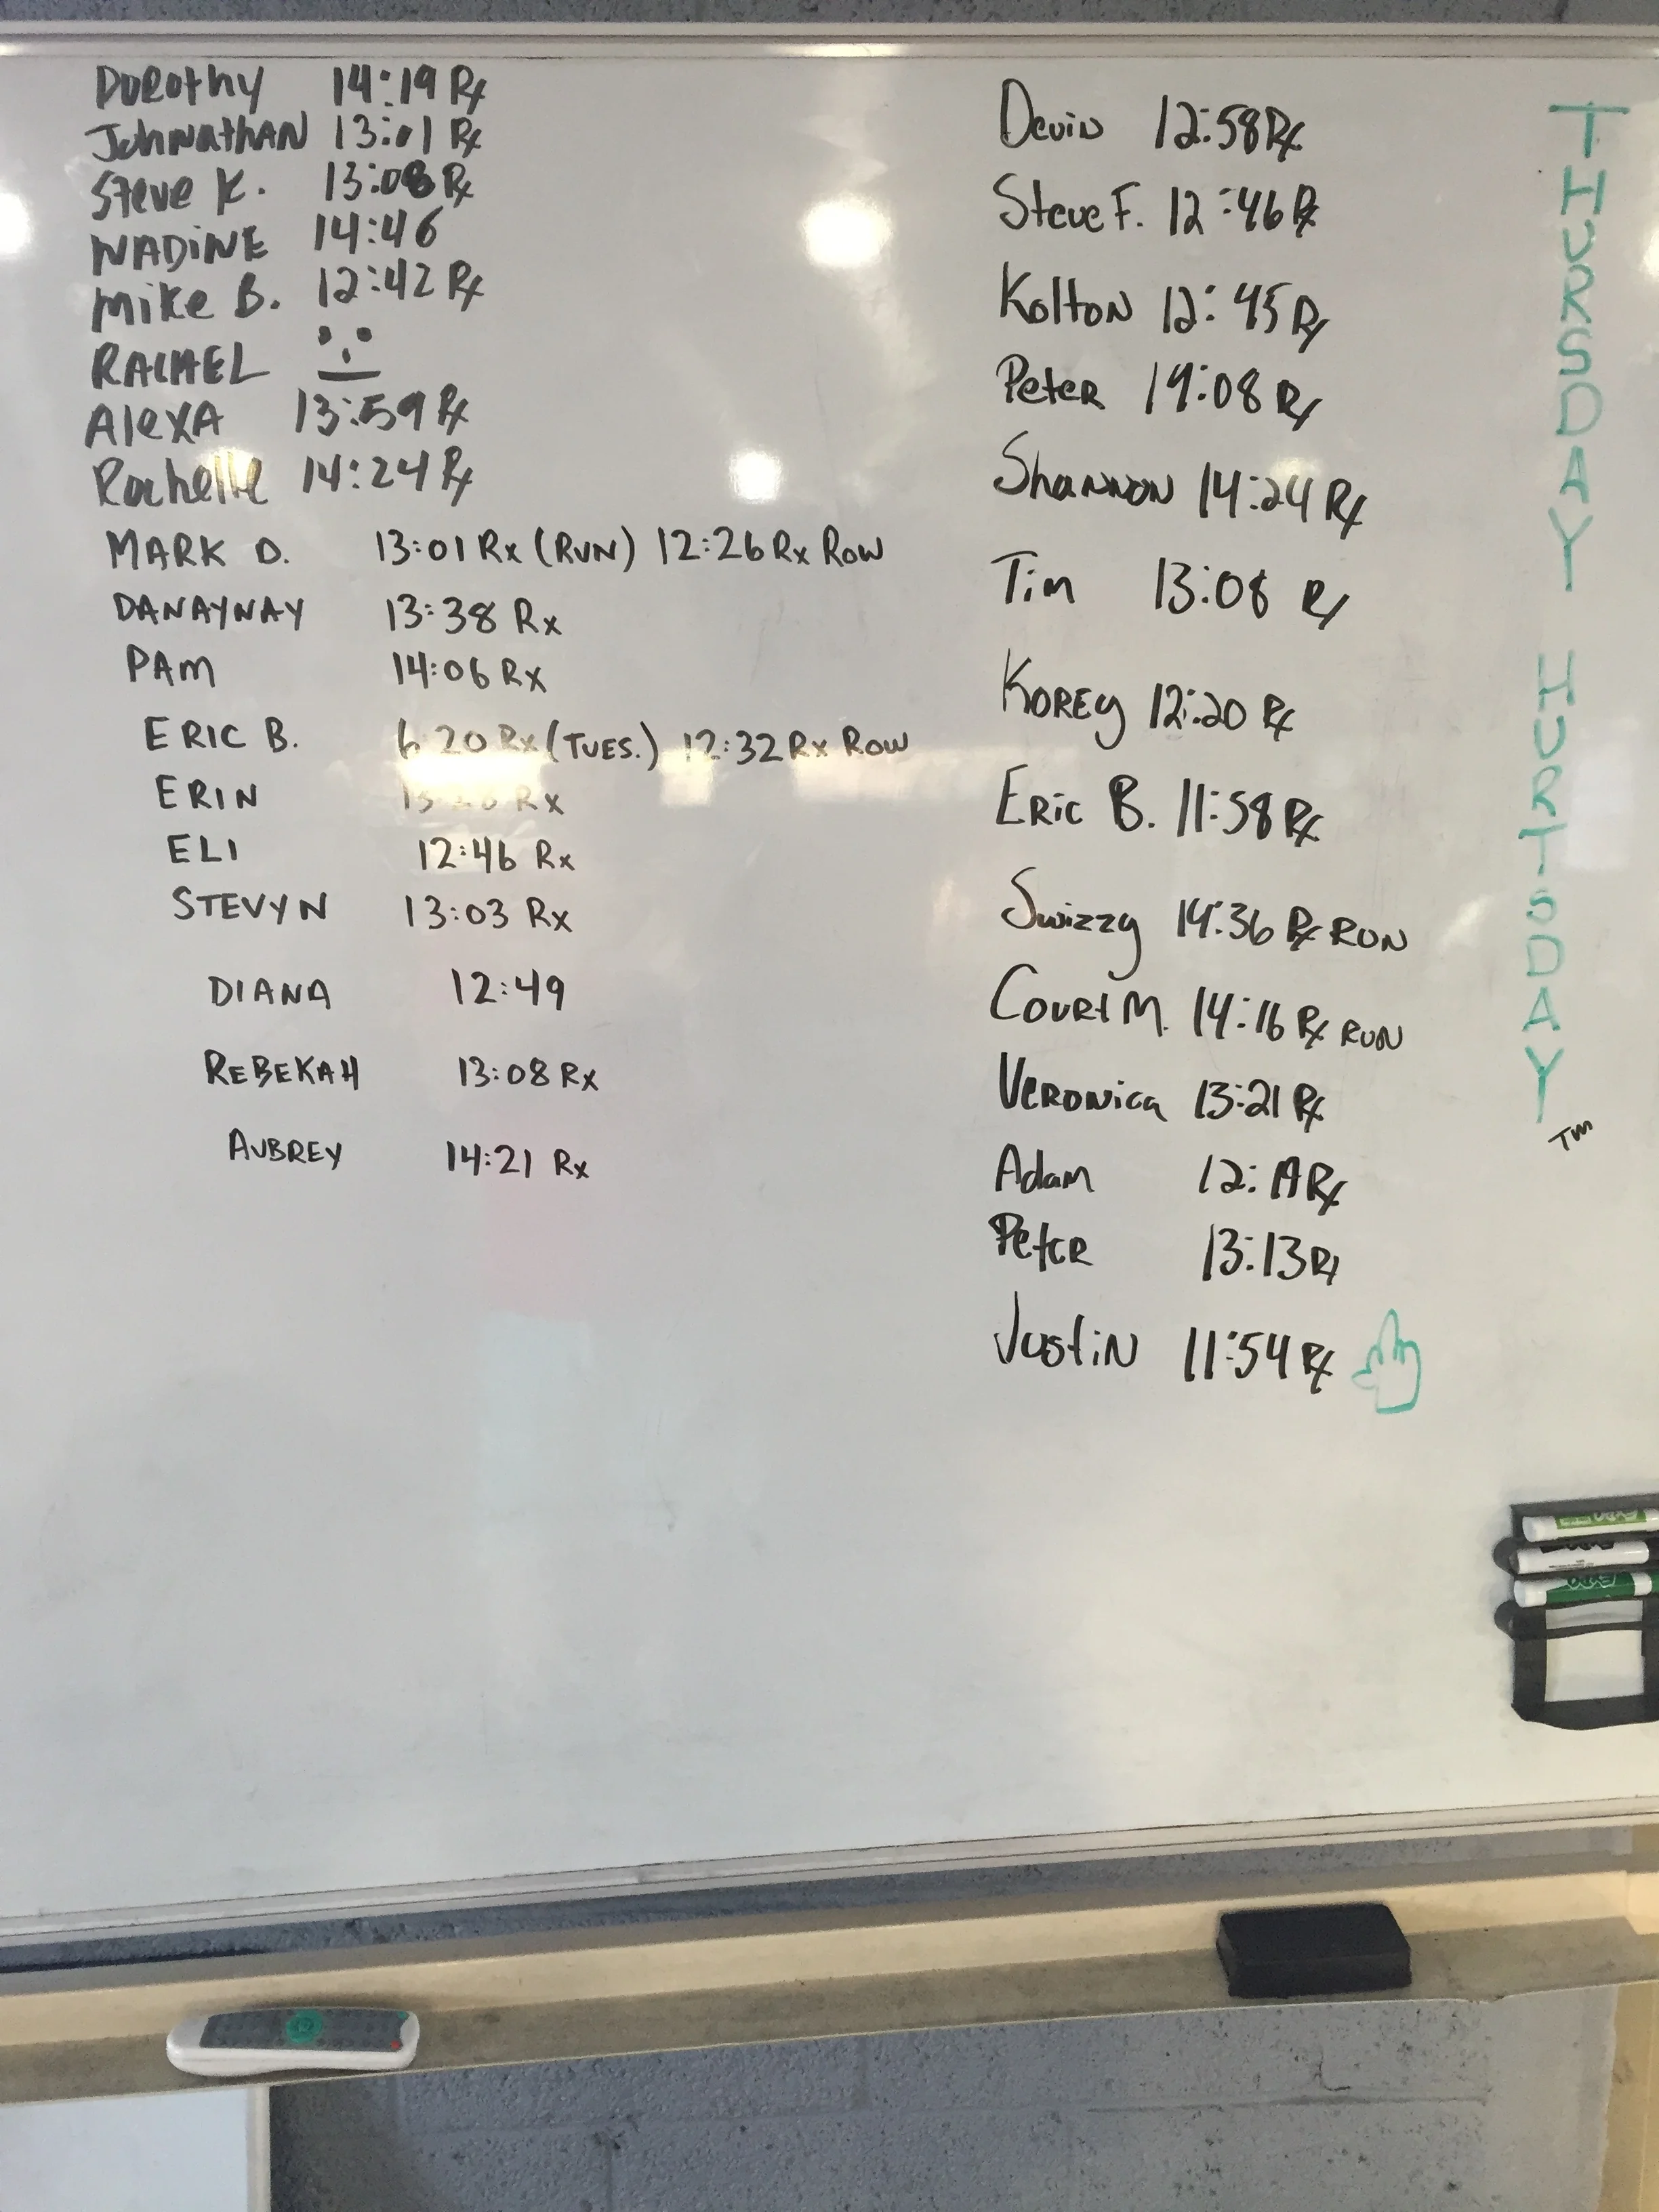 Dorothy 14:19 Rx
Johnathan 13:01 Rx
Steve K. 13:08 Rx
NADiNE 14:46
mike B. 12:42 Rx
RACHEL
AlexA 13:59 Rx
Rochelle 14:24 Rx
MARK D. 13:01 Rx (RUN) 12:26 Rx ROW
DANAYNAY 13:38 Rx
PAM 14:06 Rx
ERIC B. 6:20 Rx (TUES.) 12:32 Rx ROW
ERIN Rx
ELI 12:46 Rx
STEVYN 13:03 Rx
DIANA 12:49
REBEKAH 13:08 Rx
AUBREY 14:21 Rx
Devin 12:58 Rx
Steve F. 12:46 Rx
Kolton 12:45 Rx
Peter 14:08 Rx
Shannon 14:24 Rx
Tim 13:08 Rx
Korey 12:20 Rx
Eric B. 11:58 Rx
Swizzy 14:36 Rx RUN
Court M. 14:16 Rx RUN
Veronica 13:21 Rx
Adam Rx
Peter 13:13 Rx
Justin 11:54 Rx
THURSDAY HURTSDAY TM
EXPO